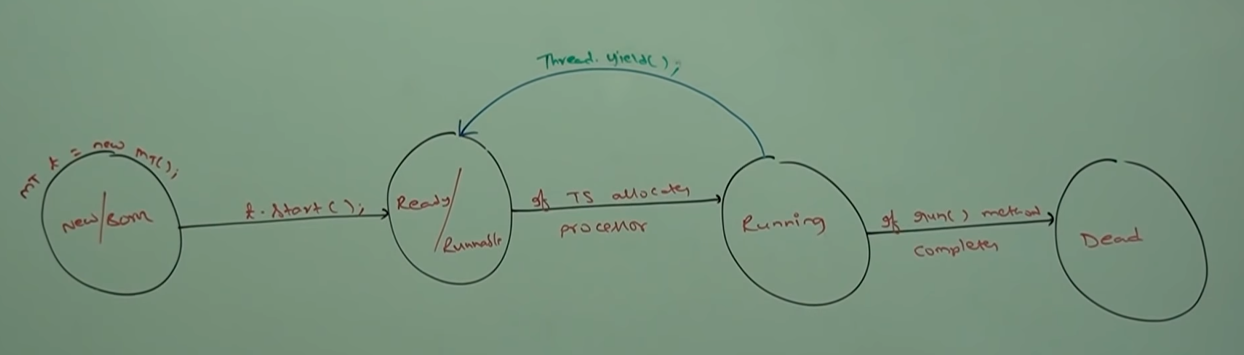 Thread.yield();
MT t = new MT();
New/Born
t.start();
Ready/
Runnable
if TS allocates
processor
Running
if run() method
completes
Dead